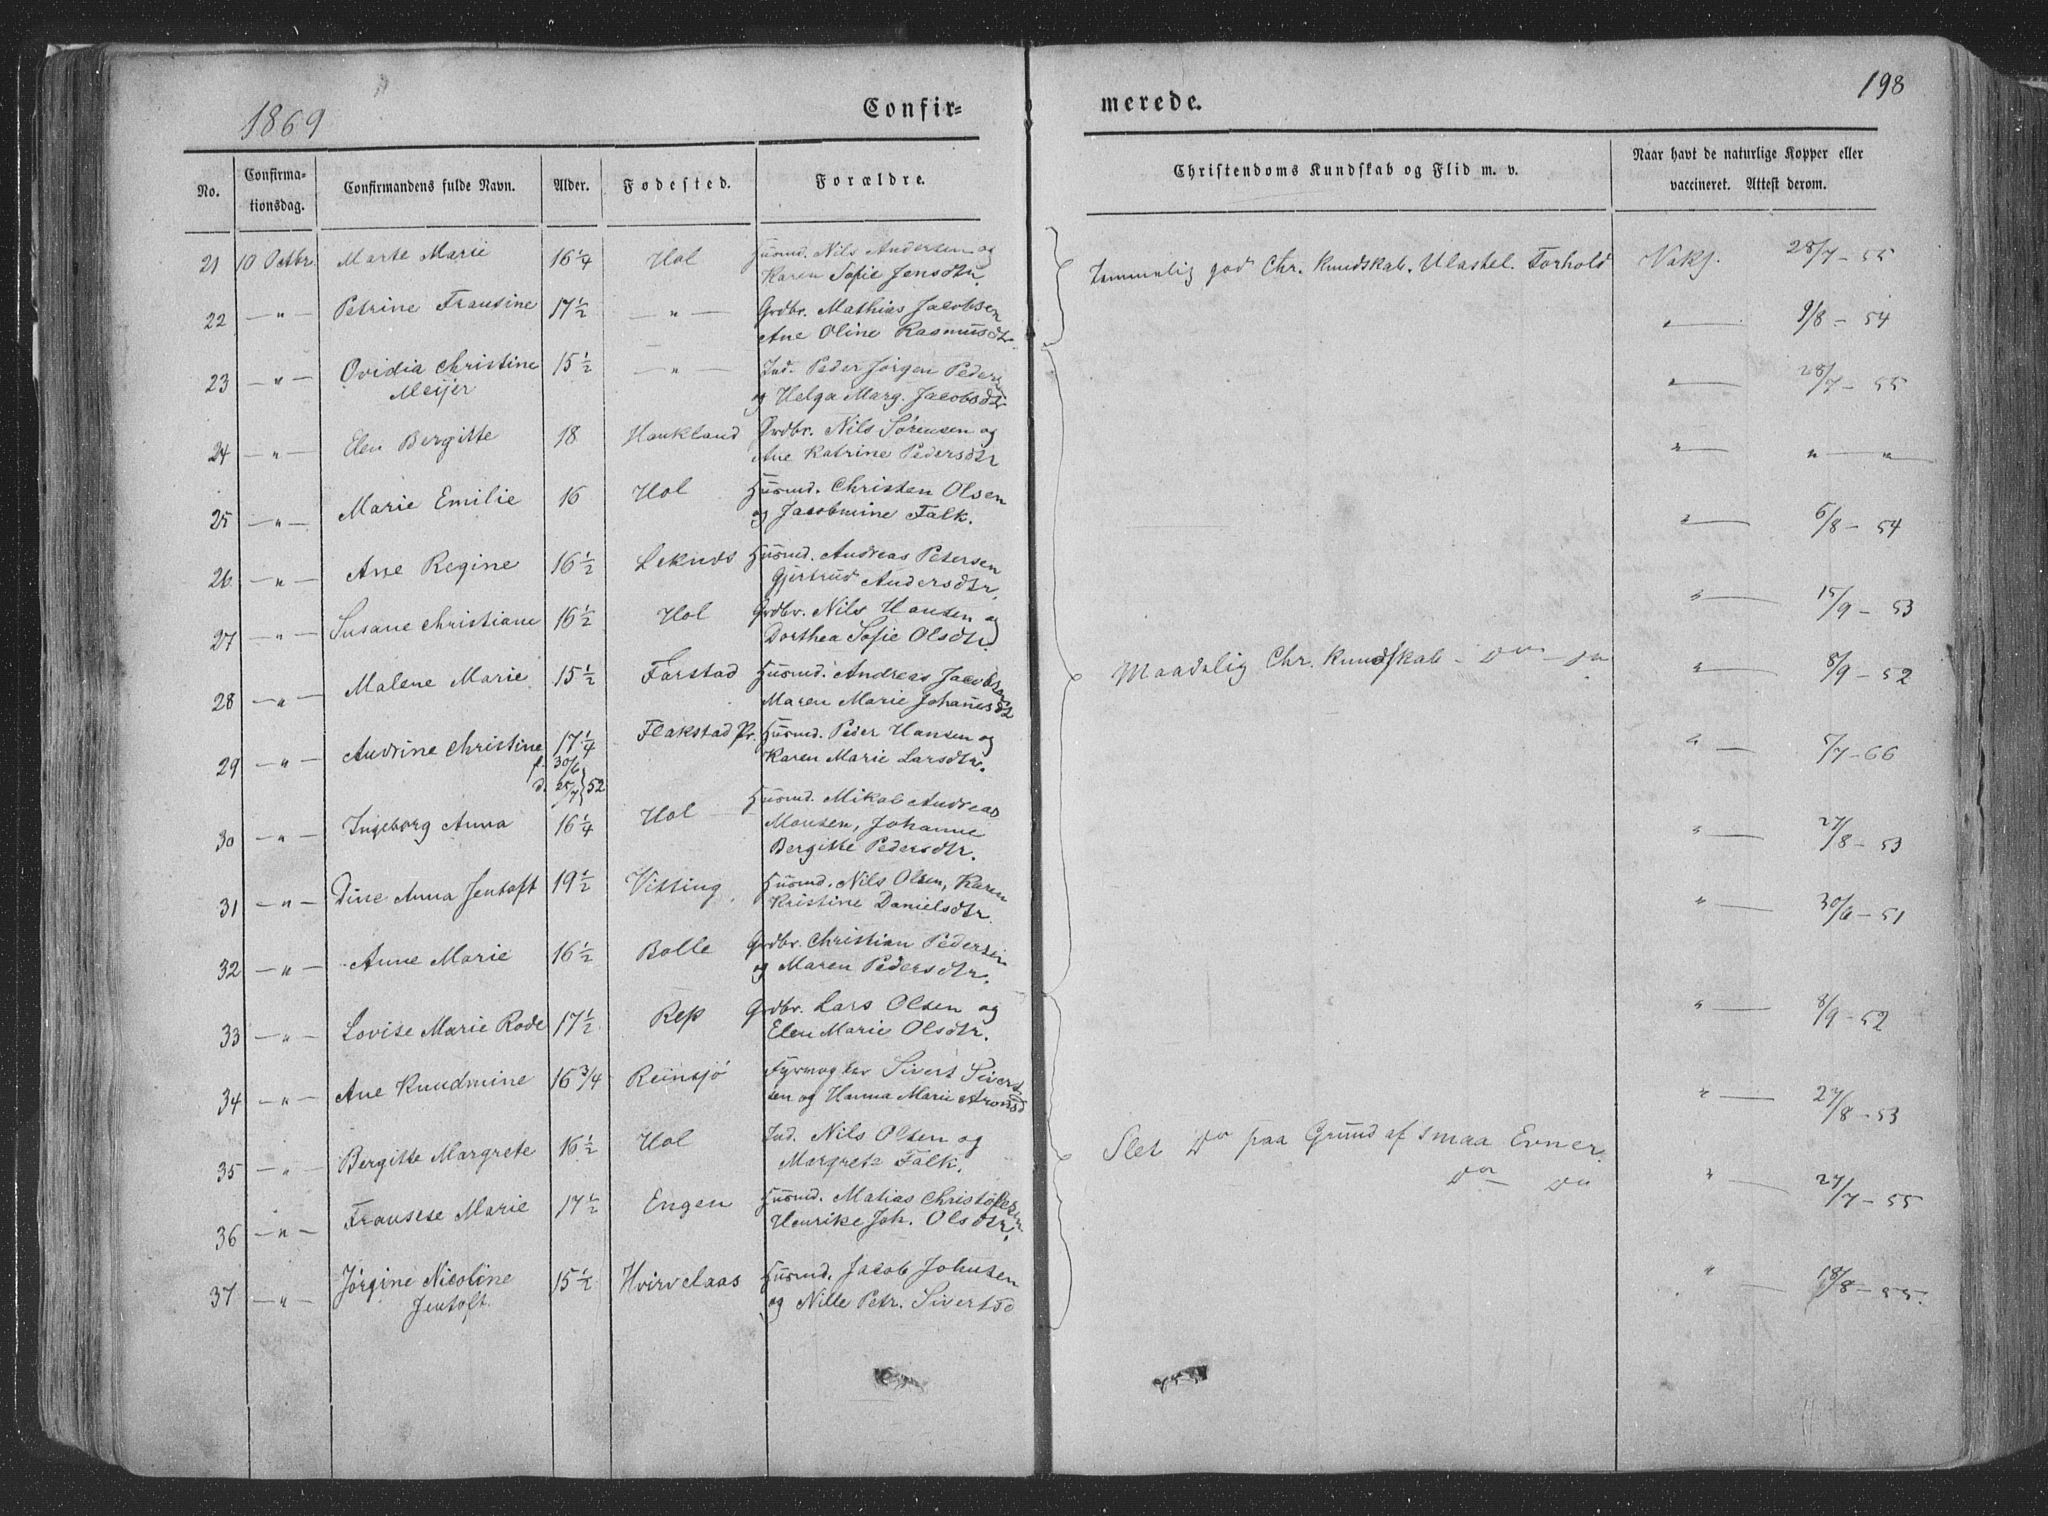 198
1869
Confir=
merede.
No.
Confirma-
tionsdag.
Confirmandens fulde Navn.
Alder.
Fødested.
Forældre.
Christendoms Kundskab og Flid m. v.
Naar havt de naturlige Kopper eller
vaccineret. Attest derom.
21 10 Octbr. Marte Marie 16 1/4 Hol Husmd. Nils Andersen og
Karen Sofie Jensdtr.
Temmelig god Chr. kundskab. Ulastel. Forhold Vaks. 28/7 - 55
22 — „ — Petrine Frantine 17 1/2 — „ — Grdbr. Mathias Jacobsen
Ane Oline Rasmusdtr.
„ — 9/8 - 54
23 — „ — Ovidia Christine 15 1/2 — „ — Ind. Peder Jörgen Peders
Meijer og Helga Marg. Jacobsdtr
„ — 28/7 - 55
24 — „ — Elen Bergitte 18 Haukland Grdbr. Nils Sørensen og
Ane Katrine Pedersdtr
„ — „ — „
25 — „ — Marie Emilie 16 Hol Husmd. Christen Olsen
og Jacobmine Falk.
„ — 6/8 - 54
26 — „ — Ane Regine 16 1/2 Leknds Husmd. Andreas Petersen
Gjertrud Andersdtr.
„ — 15/9 - 53
27 — „ — Susane Christiane 16 1/2 Hol Grdbr. Nils Hansen og
Dorthea Sofie Olsdtr.
Maadelig Chr. kundskab - do - do
28 — „ — Malene Marie 15 1/2 Farstad Husmd. Andreas Jacobsen
Maren Marie Johansdt
„ — 8/9 - 52
29 — „ — Andrine Christine 17 1/4 Flakstad Pr. Husmd. Peder Hansen og
f. 30/6 Karen Marie Larsdtr.
d. 25/7 } 52
„ — 5/7 - 66
30 — „ — Ingeborg Anna 16 1/4 Hol Husmd. Mikal Andreas
Monsen, Johanne
Bergitte Pedersdtr.
„ — 27/8 - 53
31 — „ — Dine Anna Jentoft 19 1/2 Vitting Husmd. Nils Olsen, Karen
Kristine Danielsdtr.
„ — 30/6 - 51
32 — „ — Anne Marie 16 1/2 Bolle Grdbr. Christian Pedersen
og Maren Pedersdtr.
33 — „ — Lovise Marie Rode 17 1/2 Rep Grdbr. Lars Olsen og
Elen Marie Olsdtr.
„ — 8/9 - 52
34 — „ — Ane Knudmine 16 3/4 Reinsjö Fyrvogter Sivert Sivert
sen og Hanna Marie Aronsd
„ — 27/8 - 53
35 — „ — Bergitte Margrete 16 1/2 Hol Ind. Nils Olsen og
Margrete Falk.
Slet do paa Grund af smaa Evner.
do — do
„ — 27/7 - 55
36 — „ — Fransese Marie 17 1/2 Engen Husmd. Matias Christofersen
Henrike Joh. Olsdtr.
37 — „ — Jørgine Nicoline 15 1/2 Hvirvelaas Husmd. Jacob Johnsen
Jentoft. og Nille Petr. Sivertsd
„ — 18/8 - 55.